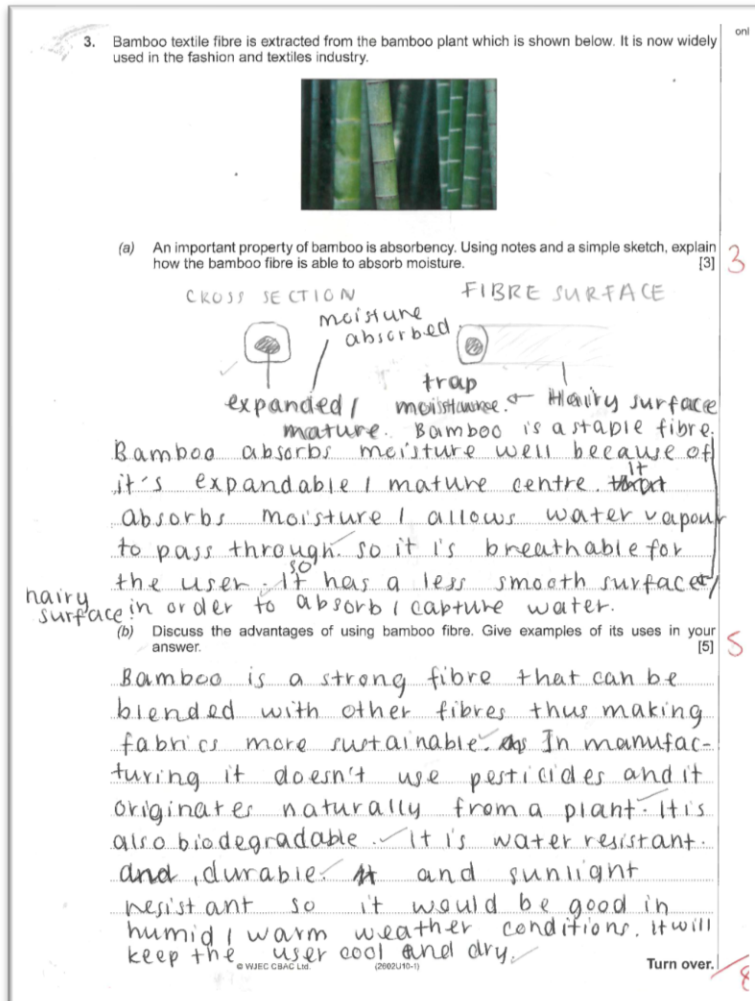 onl
3. Bamboo textile fibre is extracted from the bamboo plant which is shown below. It is now widely
used in the fashion and textiles industry.
(a) An important property of bamboo is absorbency. Using notes and a simple sketch, explain
how the bamboo fibre is able to absorb moisture. [3]
3
CROSS SECTION FIBRE SURFACE
moisture
absorbed
expanded /
mature.
trap
moistawre. ← Hairy surface
Bamboo is a staple fibre.
Bamboo absorbs moisture well because of
it's expandable / mature centre. It
absorbs moisture / allows water vapour
to pass through. so it is breathable for
the user. so It has a less smooth surface /
hairy
surface in order to absorb / capture water.
(b) Discuss the advantages of using bamboo fibre. Give examples of its uses in your
answer. [5]
5
Bamboo is a strong fibre that can be
blended with other fibres thus making
fabrics more sustainable. In manufac-
turing it doesn't use pesticides and it
originates naturally from a plant. It is
also biodegradable. It is water resistant.
and, durable. and sunlight
resistant so it would be good in
humid / warm weather conditions. It will
keep the user cool and dry.
© WJEC CBAC Ltd. (2602U10-1) Turn over.
8